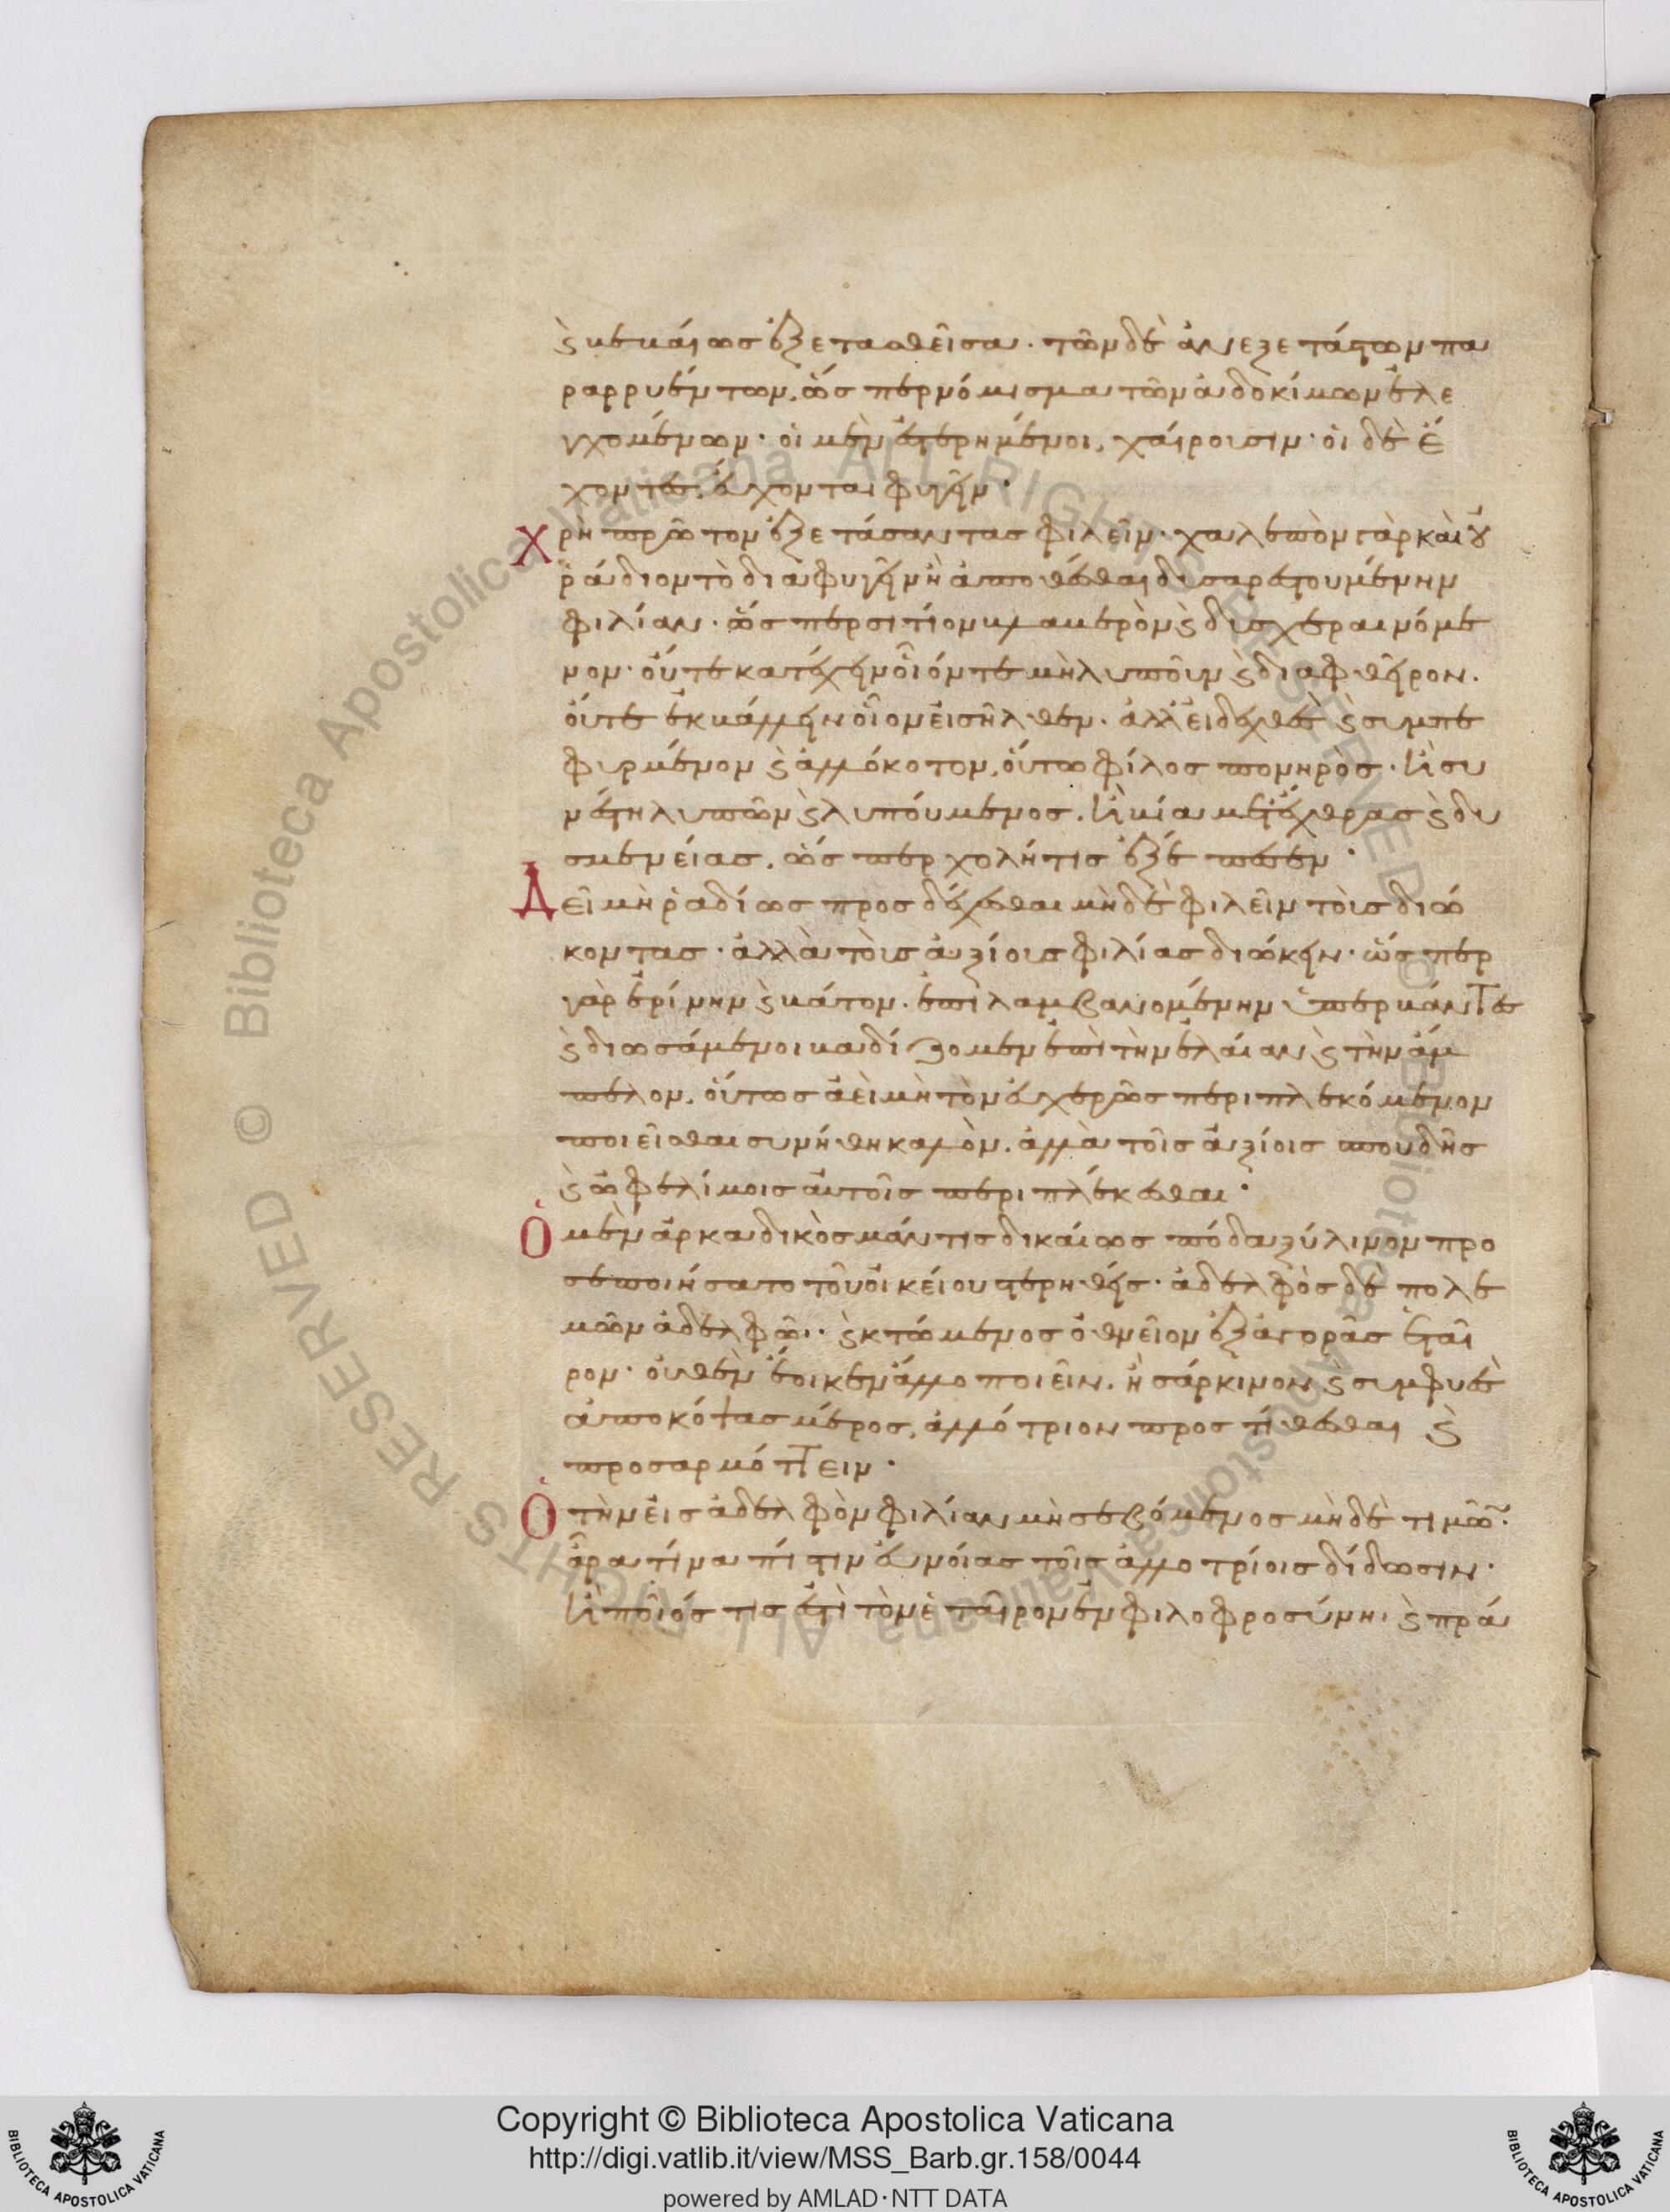 καὶ βεβαίως ἐξετασθεῖσα. τῶν δὲ ἀνεξετάστων πα
ραρρυέντων, ὥσπερ νόμισμα τῶν ἀδοκίμων ἐλε
γχομένων· οἱ μὲν ἐστερημένοι, χαίρουσιν· οἱ δὲ ἔ
χοντες, εὔχονται φυγεῖν·
Χρὴ πρῶτον ἐξετάσαντας φιλεῖν· χαλεπὸν γὰρ καὶ οὐ
ῥάδιον τὸ διαφυγεῖν ἢ ἀποθέσθαι δυσαρεστουμένην
φιλίαν· ὥσπερ σιτίον βλαβερὸν καὶ δυσχεραινόμε
νον· οὔτε κατέχειν οἷόν τε μὴ λυποῦν καὶ διαφθεῖρον.
οὔτε ἐκβάλλειν οἷον εἰσῆλθεν. ἀλλ' εἰδεχθὲς καὶ συμπε
φυρμένον καὶ ἀλλόκοτον, οὕτω φίλος πονηρὸς. ἢ σύ
νεστι λυπῶν καὶ λυπούμενος. ἢ βίᾳ μετ' ἔχθρας καὶ δυ
σμενείας, ὥσπερ χολή τις ἐξέπεσεν·
Δεῖ μὴ ῥαδίως προσδέχεσθαι μὴδὲ φιλεῖν τοὺς διώ
κοντας· ἀλλὰ τοὺς ἀξίους φιλίας διώκειν· ὥσπερ
γὰρ ἐρίνην καὶ βάτον. ἐπιλαμβανομένην ὑπερβάντες
καὶ διωσάμενοι βαδίζομεν ἐπὶ τὴν ἐλάιαν καὶ τὴν ἄμ
πελον, οὕτως ἀεὶ μὴ τὸν εὐχερῶς περιπλεκόμενον
ποιεῖσθαι συνήθη καλὸν. ἀλλὰ τοῖς ἀξίοις σπουδῆς
καὶ ὠφελίμοις αὐτοῖς περιπλέκεσθαι·
Ὁ μὲν ἀρκαδικὸς μάντις δικαίως πόδα ξύλινον προ
σεποιήσατο τοῦ οἰκείου στερηθείς· ἀδελφὸς δὲ πολε
μῶν ἀδελφῶι· καὶ κτώμενος ὀθνεῖον ἐξ ἀγορᾶς ἑταῖ
ρον· οὐθὲν ἔοικεν ἄλλο ποιεῖν. ἢ σάρκινον καὶ συμφυὲς
ἀποκόψας μέρος, ἀλλότριον προστίθεσθαι καὶ
προσαρμόττειν·
Ὁ τὴν εἰς ἀδελφὸν φιλίαν μὴ σεβόμενος μὴδὲ τιμῶν·
ἆρα τίνα πίστιν εὐνοίας τοῖς ἀλλοτρίοις δίδωσιν·
ἢ ποῖός τις ἐστὶ τὸν ἑταῖρον ἐν φιλοφροσύνη· καὶ πρᾶ
Copyright © Biblioteca Apostolica Vaticana
http://digi.vatlib.it/view/MSS_Barb.gr.158/0044
powered by AMLAD·NTT DATA